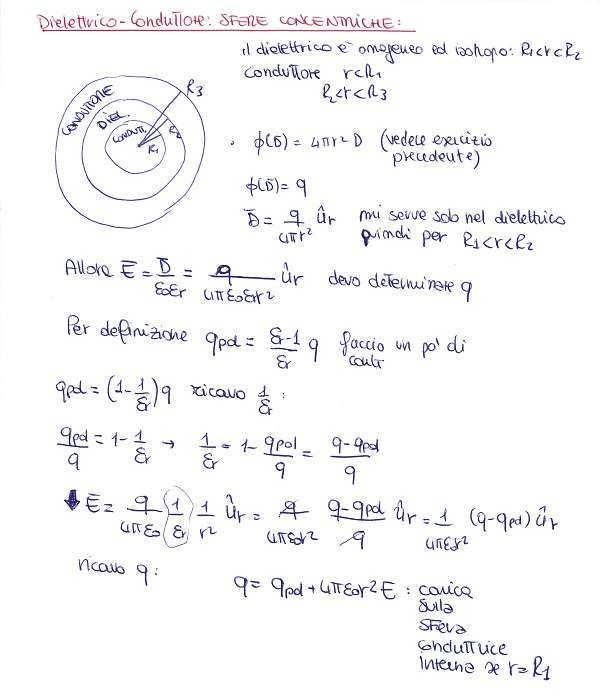 Dielettrico-Conduttore: SFERE CONCENTRICHE:
il dielettrico è omogeneo ed isotropo: R1<r<R2
conduttore r<R1
R2<r<R3
CONDUTTORE
DIEL.
CONDUTT.
R1
R2
R3
. φ(D̄) = 4πr²D (vedere esercizio
precedente)
φ(D̄) = q
D̄ = q/4πr² ûr mi serve solo nel dielettrico
quindi per R1<r<R2
Allora Ē = D̄/ε0εr = q/4πε0εr r² ûr devo determinare q
Per definizione qpol = (εr-1)/εr q faccio un po' di
conti
qpol = (1-1/εr)q ricavo 1/εr :
qpol/q = 1-1/εr → 1/εr = 1-qpol/q = (q-qpol)/q
Ē = q/4πε0 1/εr 1/r² ûr = q/4πε0r² (q-qpol)/q ûr = 1/4πε0r² (q-qpol) ûr
ricavo q: q = qpol + 4πε0r²E : carica
sulla
sfera
conduttrice
interna r=R1